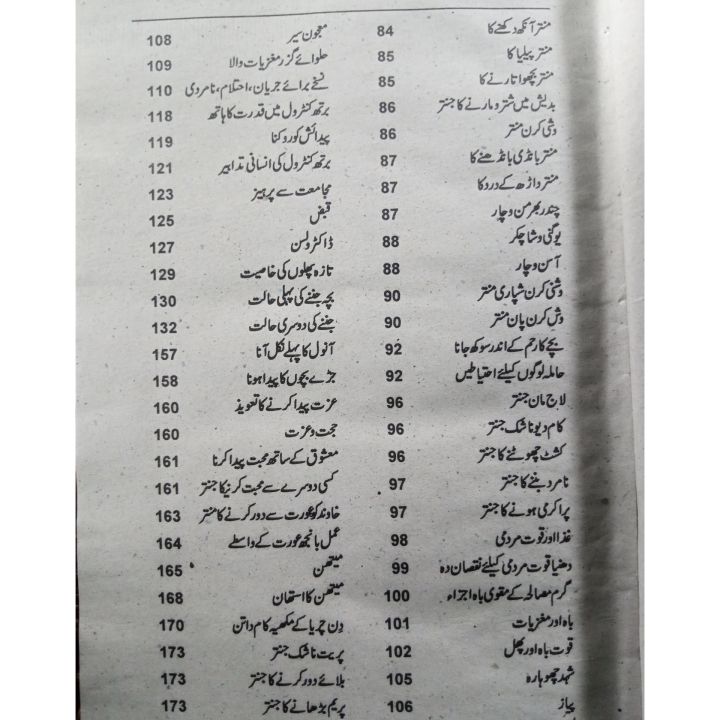 منتر آنکھ دکھنے کا 84
منتر پیلیا کا 85
منتر بچھو اتارنے کا 85
بدیش میں شترو مارنے کا جنتر 86
وشی کرن منتر 86
منتر ہانڈی باندھنے کا 87
منتر داڑھ کے درد کا 87
چندر بھرمن وچار 87
یوگنی وشا چکر 88
آسن وچار 88
وشنی کرن شپاری منتر 90
وش کرن پان منتر 90
بچے کا رحم کے اندر سوکھ جانا 92
حاملہ لوگوں کیلئے احتیاطیں 92
لاج مان جنتر 96
کام دیو ناشک جنتر 96
کشٹ چھوٹنے کا جنتر 96
نامرد بننے کا جنتر 97
پراکرمی ہونے کا جنتر 97
غذا اور قوت مردمی 98
دھنیا قوت مردمی کیلئے نقصان دہ 99
گرم مصالحہ کے مقوی باہ اجزاء 100
باہ اور مغزیات 101
قوت باہ اور پھل 102
شہد چھوہارہ 105
پیاز 106
معجون سیر 108
حلوائے گزر مغزیات والا 109
نسخے برائے جریان، احتلام، نامردی 110
برتھ کنٹرول میں قدرت کا ہاتھ 118
پیدائش کو روکنا 119
برتھ کنٹرول کی انسانی تدابیر 121
مجامعت سے پرہیز 123
قبض 125
ڈاکٹر ولسن 127
تازہ پھلوں کی خاصیت 129
بچہ جننے کی پہلی حالت 130
جننے کی دوسری حالت 132
آنول کا پہلے نکل آنا 157
جڑے بچوں کا پیدا ہونا 158
عزت پیدا کرنے کا تعویذ 160
حجت و عزت 160
معشوق کے ساتھ محبت پیدا کرنا 161
کسی دوسرے سے محبت کرنیکا جنتر 161
خاوند کو عورت سے دور کرنے کا منتر 163
عمل بانجھ عورت کے واسطے 164
میتھن 165
میتھن کا استھان 168
دن چریا کے مکھیہ کام داتن 170
پریت ناشک جنتر 173
بلائے دور کرنے کا جنتر 173
پریم بڑھانے کا جنتر 173